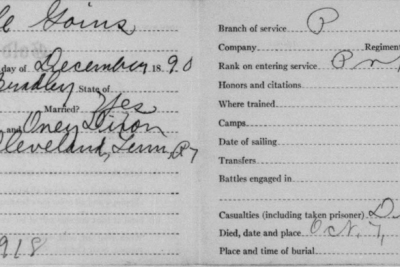 Goins
day of December 1890
Bradley State of
Married? Yes
and Oney Dixon
Cleveland, Tenn, R7
1918
Branch of service P
Company Regiment
Rank on entering service
Honors and citations
Where trained
Camps
Date of sailing
Transfers
Battles engaged in
Casualties (including taken prisoner) D
Died, date and place Oct. 7,
Place and time of burial